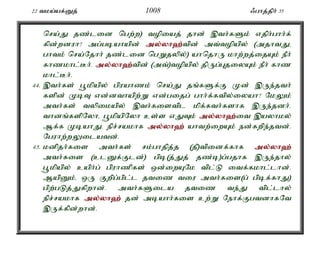 22 வமய்யக்னுத் 1008 ஃபாத்திர் 35
செய்து தண்டனை பெற்ற) வழியைத் தான் இவர்களும் எதிர்பார்க்
கின்றனரா! அப்படியாயின் அல்லாஹ்வின் அவ்வழியில் (அதாவது,
பாவம் செய்தோர் தண்டனை பெறுதலில்) யாதொரு மாற்றத்தையும் நீர்
காணமாட்டீர். அல்லாஹ்வின் (அவ்)வழியில் திருப்புதலையும் நீர் காண
மாட்டீர்.
44. இவர்கள் பூமியில் பிரயாணம் செய்து தங்களுக்கு முன் இருந்தவர்
களின் முடிவு என்னவாயிற்று என்பதைப் பார்க்கவில்லையா? மேலும்
அவர்கள் வலிமையில் இவர்களைவிட மிக்கவர்களாக இருந்தனர்.
வானங்களிலோ, பூமியிலோ உள்ள எதுவும் அல்லாஹ்வை இயலாமல்
ஆக்க முடியாது. நிச்சயமாக அல்லாஹ் யாவற்றையும் நன்கறிந்தவன்,
பேராற்றலுடையவன்.
45. மனிதர்களை அவர்கள் சம்பாதித்த (தீ)வினைக்காக அல்லாஹ்
அவர்களை (உடனுக்குடன்) பிடி(த்துத் தண்டி)ப்பதாக இருந்தால்
பூமியில் உயிர்ப் பிராணிகள் ஒன்றையுமே விட்டு வைக்கமாட்டான்.
ஆயினும், ஒரு குறிப்பிட்ட தவணை வரை அவர்களை(ப் பிடிக்காது)
பிற்படுத்துகிறான். அவர்களுடைய தவணை வந்து விட்டால்
நிச்சயமாக அல்லாஹ் தன் அடியார்களை உற்று நோக்குபவனாகவே
இருக்கின்றான்.